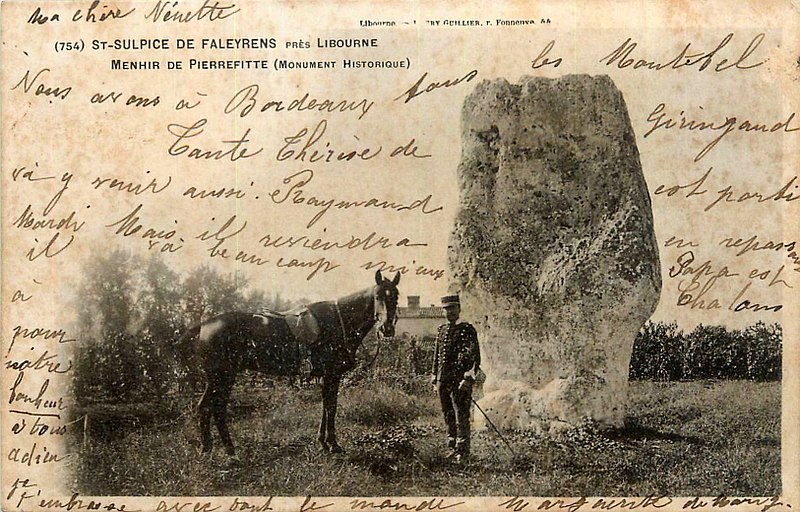 Ma chère Nénette
Libourne HENRY GUILLIER, r. Fonneuve, 44
(754) ST-SULPICE DE FALEYRENS PRÈS LIBOURNE
MENHIR DE PIERREFITTE (MONUMENT HISTORIQUE)
Nous avons à Bordeaux tous les Montubel
Tante Thérèse de Giringaud
va y venir aussi. Raymond est parti
Mardi Mais il reviendra en repassant
il va beaucoup mieux Papa est
à Chalons
pour
notre
bonheur
à tous
adieu
je t'embrasse avec tout le monde Marguerite de